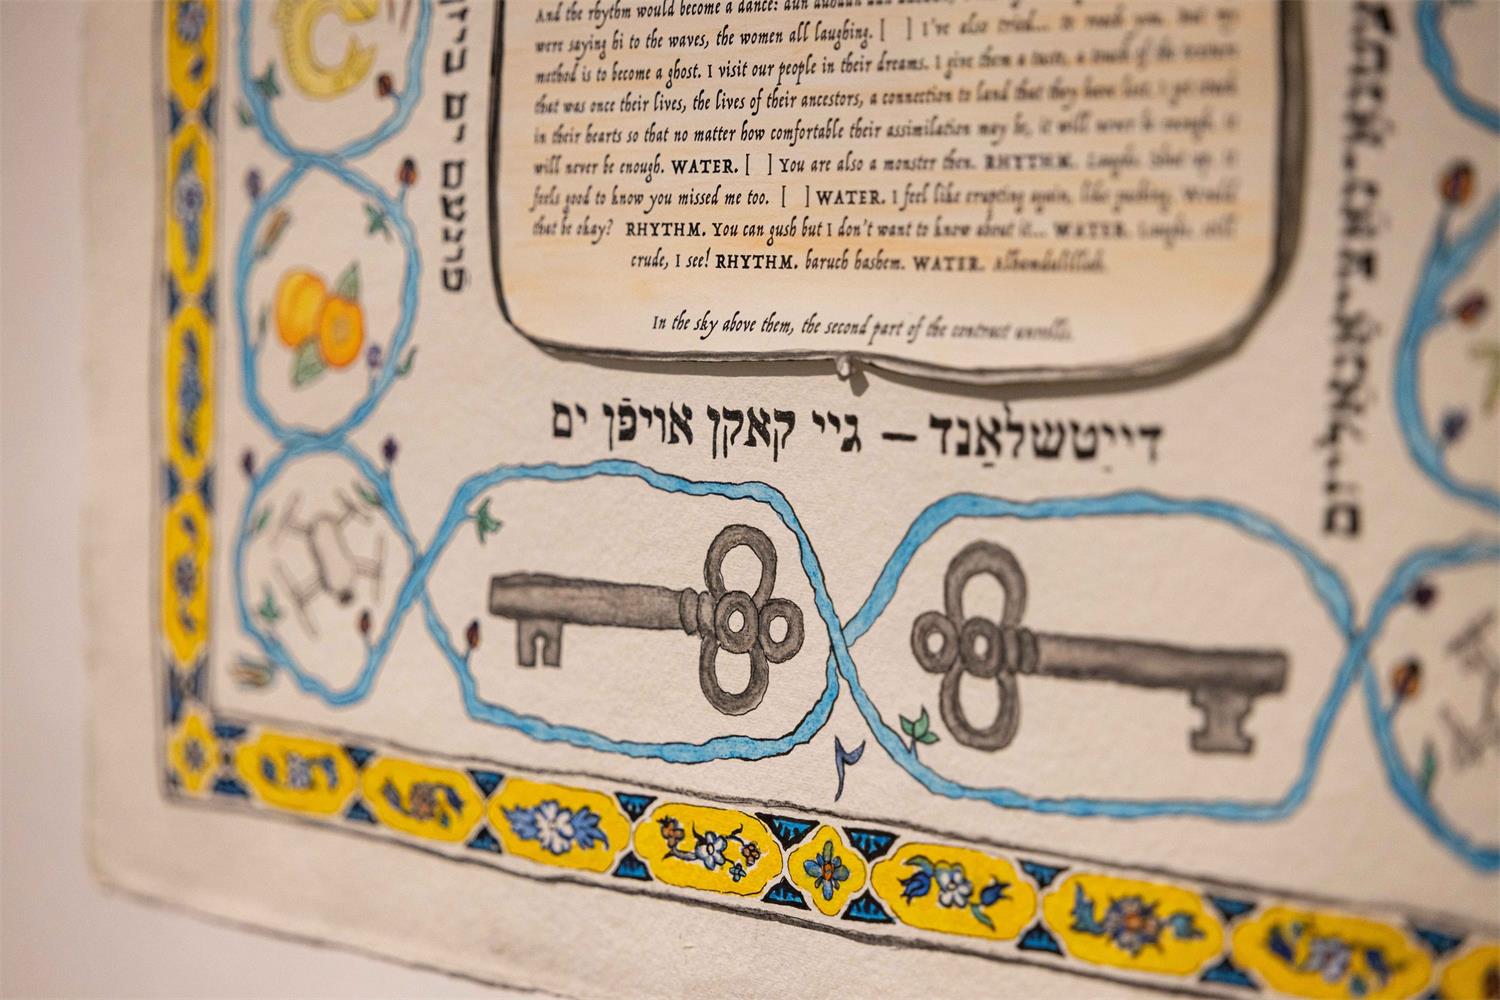 And the rhythm would become a dance:
were saying hi to the waves, the women all laughing. [ ] I've also tried... to reach you. But my
method is to become a ghost. I visit our people in their dreams. I give them a taste, a touch of the
that was once their lives, the lives of their ancestors, a connection to land that they have lost. I get stuck
in their hearts so that no matter how comfortable their assimilation may be, it will never be enough. It
will never be enough. WATER. [ ] You are also a monster then. RHYTHM. Laughs. Shut up. It
feels good to know you missed me too. [ ] WATER. I feel like erupting again, like gushing. Would
that be okay? RHYTHM. You can gush but I don't want to know about it... WATER. Laughs. still
crude, I see! RHYTHM. baruch hashem. WATER. Alhamdulillah.
In the sky above them, the second part of the contract unrolls.
דײַטשלאַנד – גיי קאקן אויפֿן ים
פֿונעם ים ביזן